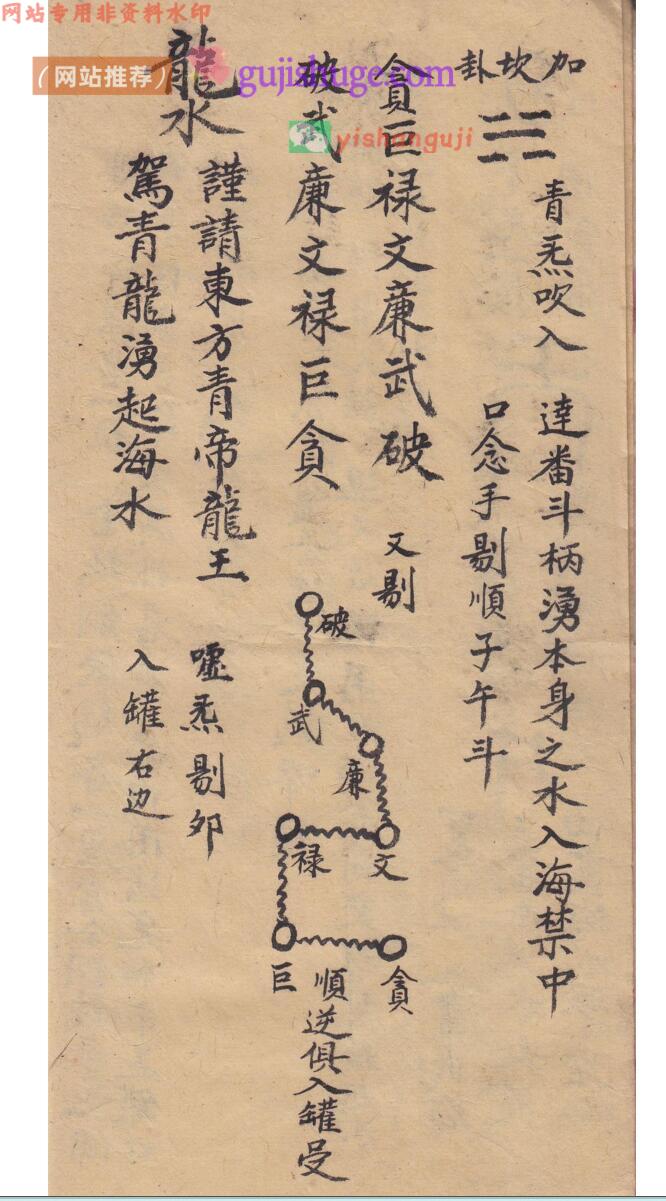 网站专用非资料水印
(网站推荐)
gujishuge.com
yishanguji
加坎卦
青炁吹入
逹番斗柄湧本身之水入海禁中
口念手剔順子午斗
貪巨禄文廉武破
又剔
破武廉文禄巨貪
破
武
廉
文
禄
巨
貪
順逆俱入罐受
龍水
謹請東方青帝龍王
嘘炁剔卯
駕青龍湧起海水
入罐右边